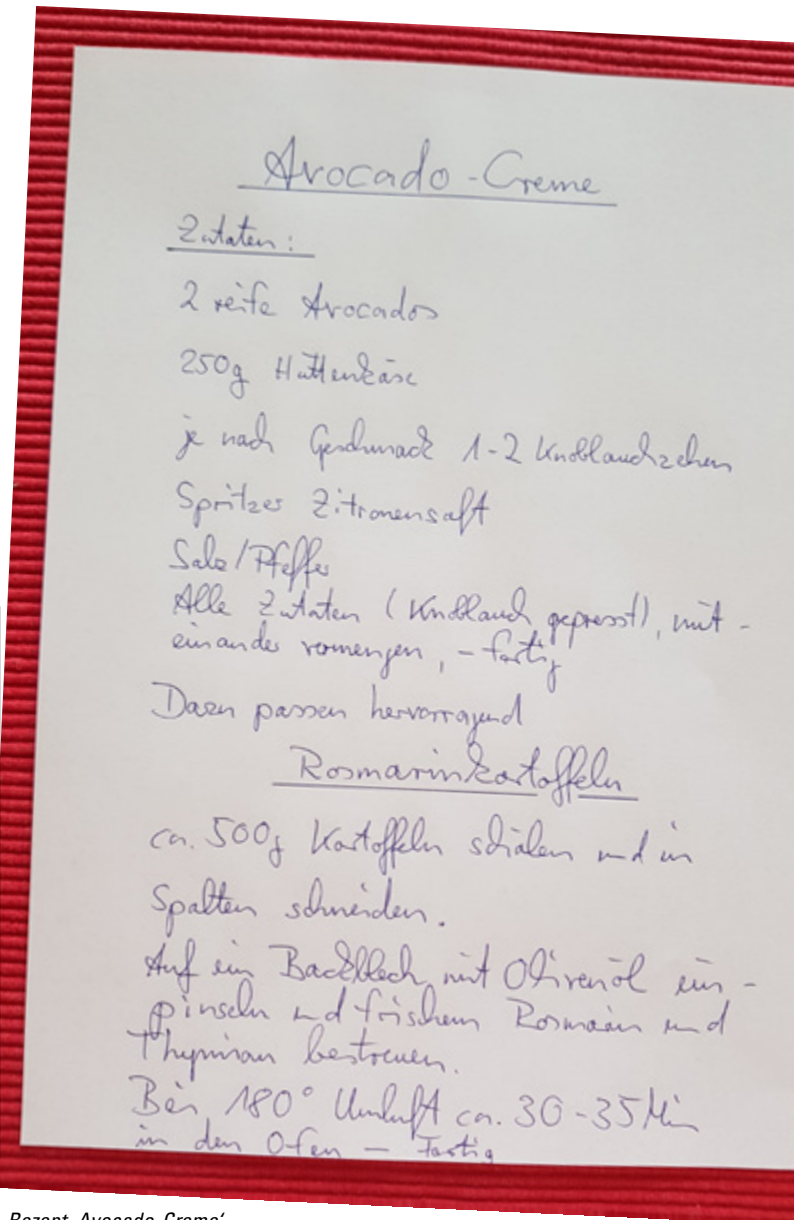 Avocado-Creme
Zutaten:
2 reife Avocados
250g Hüttenkäse
je nach Geschmack 1-2 Knoblauchzehen
Spritzer Zitronensaft
Salz/Pfeffer
Alle Zutaten (Knoblauch gepresst), mit-
einander vermengen, - fertig
Dazu passen hervorragend
Rosmarinkartoffeln
ca. 500g Kartoffeln schälen und in
Spalten schneiden.
Auf ein Backblech, mit Olivenöl ein-
pinseln und frischem Rosmarin und
Thymian bestreuen.
Bei 180° Umluft ca. 30-35 Min
in den Ofen - Fertig
Rezept „Avocado-Creme‘